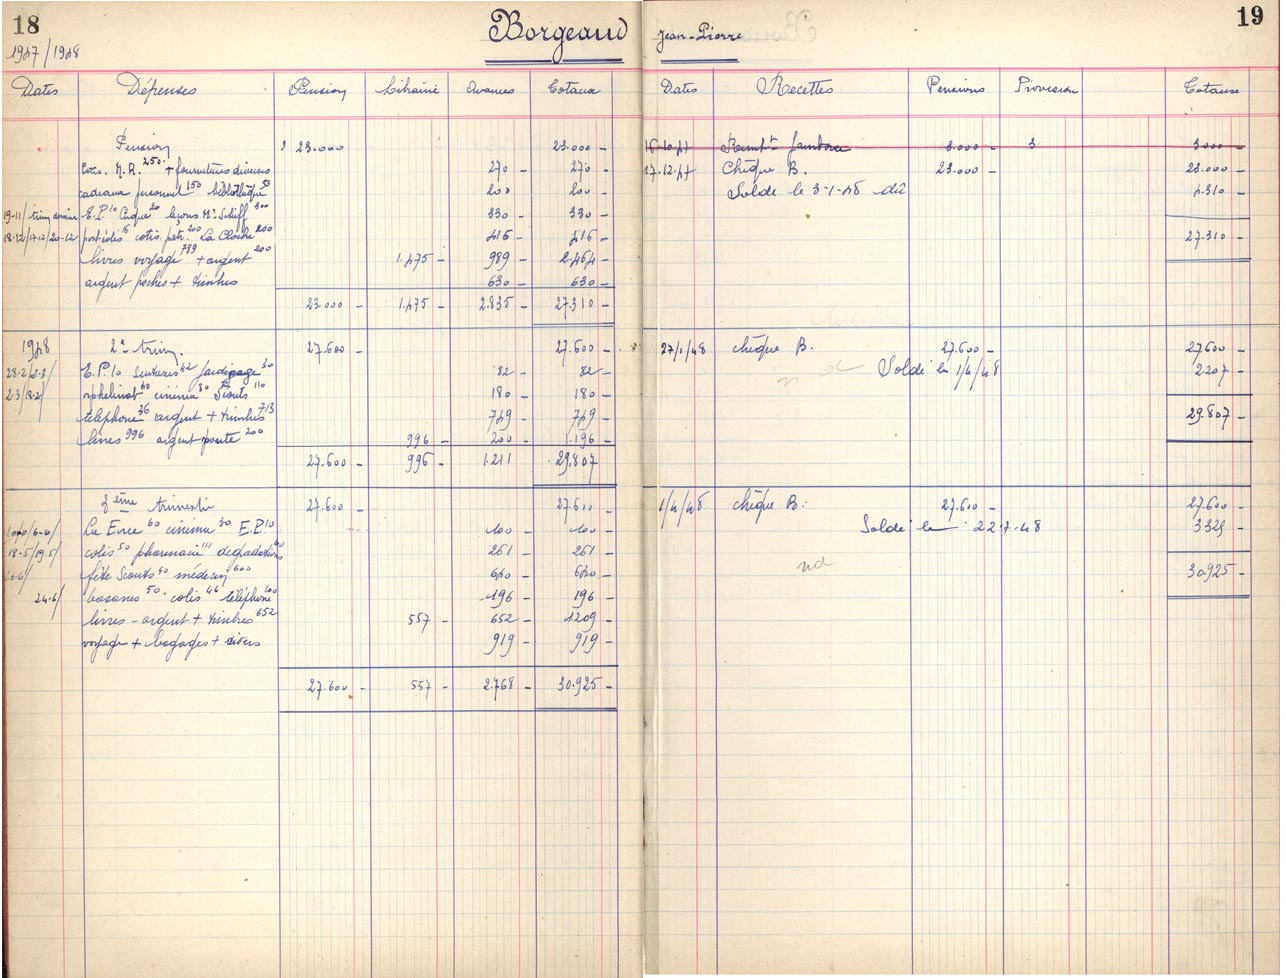 18
1947/1948
Borgeaud
Dates Dépenses Pension Librairie Avances Totaux
Pension 23.000 23.000 -
Cotis. N.R. 250. + fournitures diverses 270 - 270 -
cadeaux personnel 150 bibliothèque 50 200 - 200 -
19-11/ E.P. 10 Casque 20 leçons Mr Schiff 300 330 - 330 -
18-12/17-12/20-12 cotis. 200 La Cloche 200 416 - 416 -
livres voyage 789 + argent 200 1.475 - 989 - 2.464 -
argent poches + timbres 630 - 630 -
23.000 - 1.475 - 2.835 - 27.310 -
1948 2e trim. 27.600 - 27.600 -
E.P. 10 42 jardinage 30 82 - 82 -
orphelinat 40 cinéma 30 Scouts 110 180 - 180 -
téléphone 36 argent + timbres 713 749 - 749 -
livres 996 argent 200 996 - 200 - 1.196 -
27.600 - 996 - 1.211 - 29.807 -
3ème trimestre 27.600 - 27.600 -
60 cinéma 30 E.P. 10 100 - 100 -
18-5/19.5/ colis 50 pharmacie 111 dégradations 261 - 261 -
fête Scouts 40 médecin 600 640 - 640 -
24.6/ 50 colis 46 téléphone 100 196 - 196 -
livres - argent + timbres 652 557 - 652 - 1209 -
voyage + bagages + divers 919 - 919 -
27.600 - 557 - 2.768 - 30.925 -
19
Jean-Pierre
Dates Recettes Pensions Provision Totaux
16-10.47 3.000 - 3 3000 -
17.12.47 Chèque B. 23.000 -
Solde le 3-1-48 dû 4.310 -
27.310 -
27/1/48 chèque B. 27.600 - 27.600 -
Solde le 1/4/48 2207 -
29.807 -
1/4/48 chèque B. 27.600 - 27.600 -
Solde le 22-7-48 3325 -
30.925 -